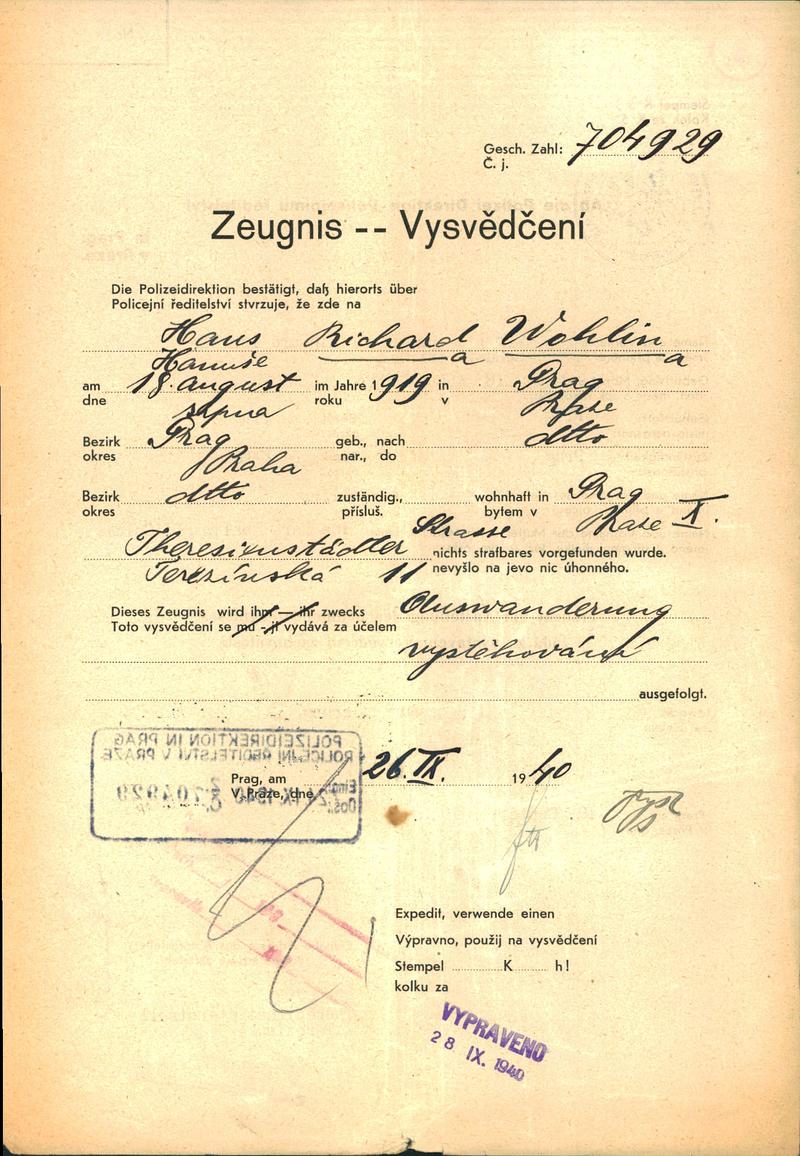 Gesch. Zahl: 704929
Č. j.
Zeugnis -- Vysvědčení
Die Polizeidirektion bestätigt, daß hierorts über
Policejní ředitelství stvrzuje, že zde na
Hans Richard Wohlin
Hanuše a a
am 18. august im Jahre 1919 in Prag
dne srpna roku v Praze
Bezirk Prag geb., nach dtto
okres Praha nar., do
Bezirk dtto zuständig., wohnhaft in Prag
okres přísluš. bytem v Praze X.
Theresienstädter Strasse nichts strafbares vorgefunden wurde.
Terezínská 11 nevyšlo na jevo nic úhonného.
Dieses Zeugnis wird ihm — ihr zwecks Auswanderung
Toto vysvědčení se mu - jí vydává za účelem
vystěhování
ausgefolgt.
POLIZEIDIREKTION IN PRAG
POLICEJNÍ ŘEDITELSTVÍ V PRAZE
Prag, am 26. IX. 1940
V Praze, dne
Eing.:
Doš.:
704929
Expedit, verwende einen
Výpravno, použij na vysvědčení
Stempel K h!
kolku za
VYPRAVENO
28 IX. 1940